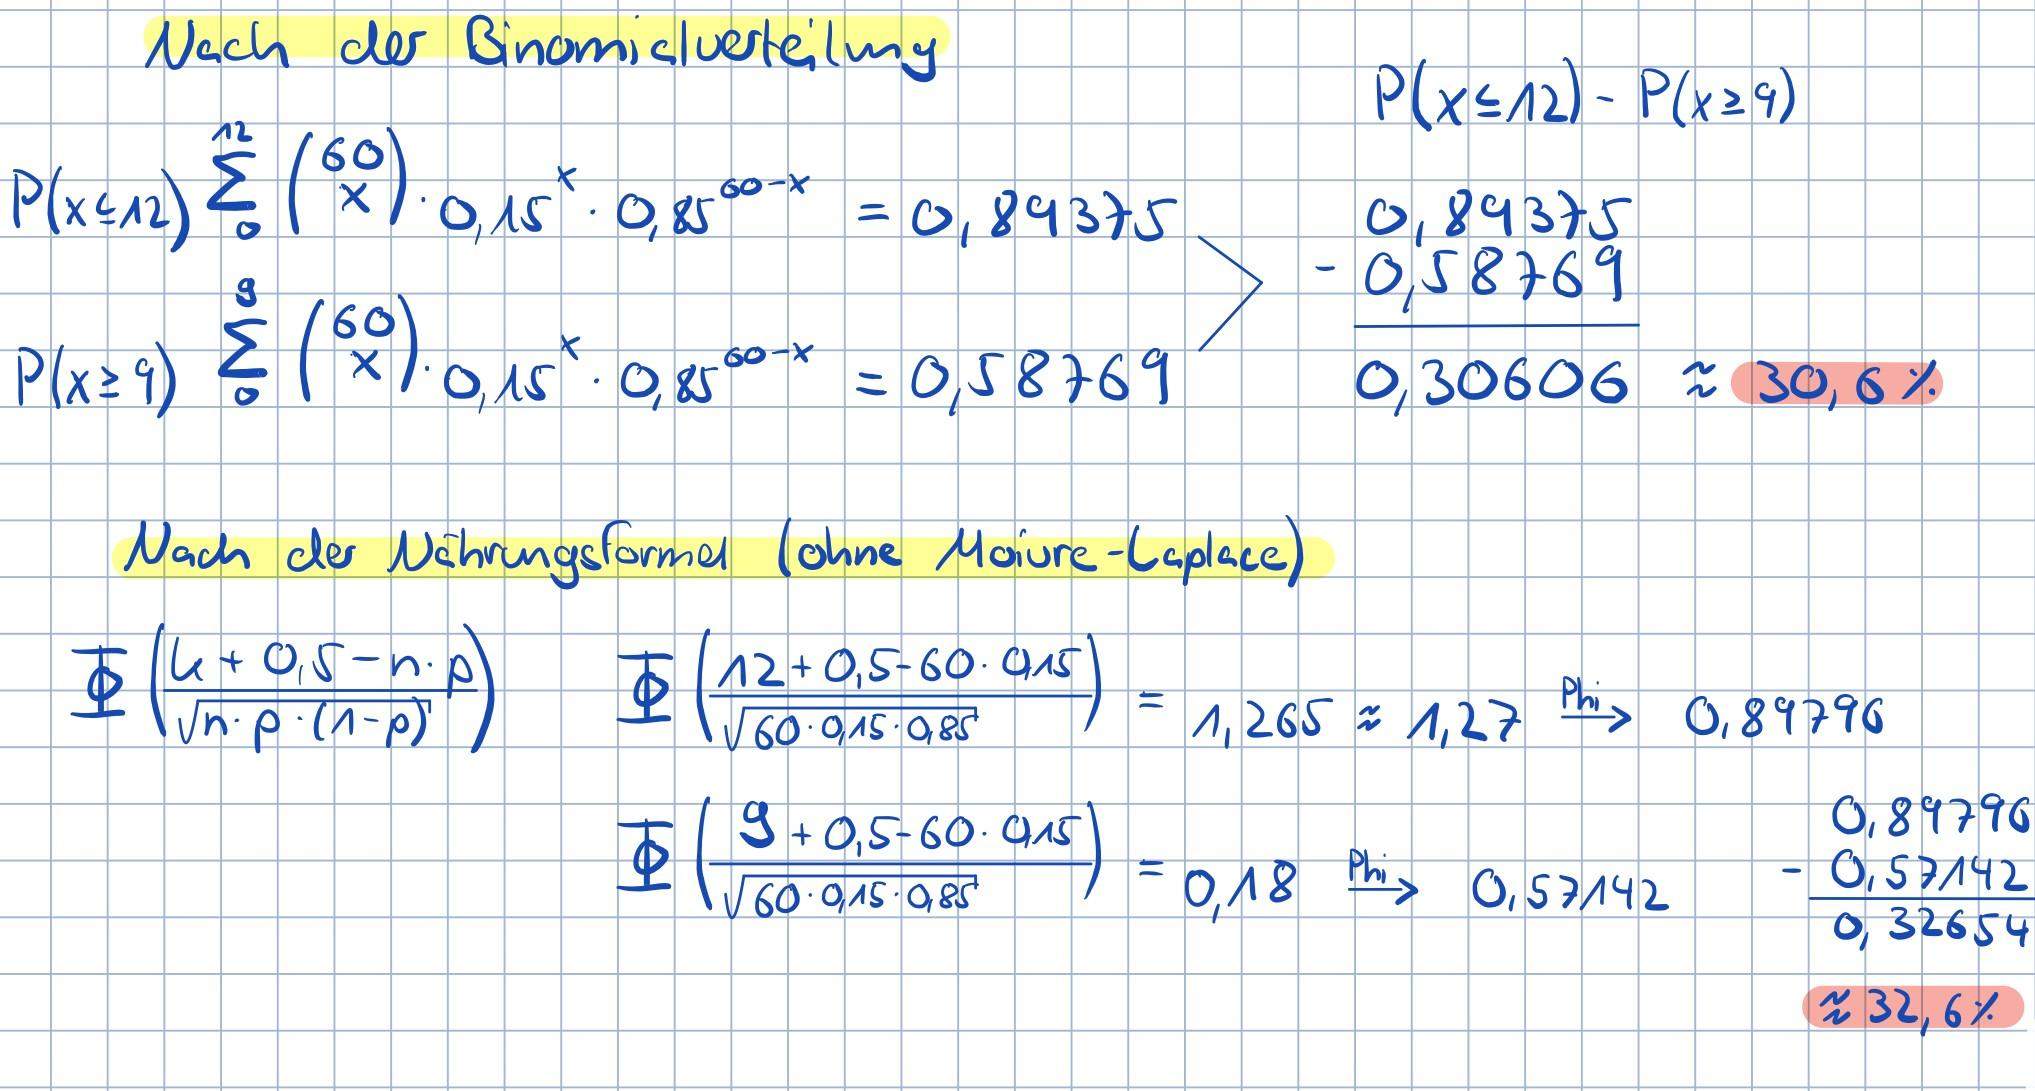 Nach der Binomialverteilung
P(x≤12) - P(x≥9)
P(x≤12) 12 Σ 0 (60 x) · 0,15^x · 0,85^60-x = 0,89375
0,89375
- 0,58769
P(x≥9) 9 Σ 0 (60 x) · 0,15^x · 0,85^60-x = 0,58769
0,30606 ≈ 30,6%
Nach der Nährungsformel (ohne Moivre-Laplace)
Φ (k + 0,5 - n · p / √n · p · (1-p))
Φ (12 + 0,5 - 60 · 0,15 / √60 · 0,15 · 0,85) = 1,265 ≈ 1,27 Phi → 0,89796
Φ (9 + 0,5 - 60 · 0,15 / √60 · 0,15 · 0,85) = 0,18 Phi → 0,57142
0,89796
- 0,57142
0,32654
≈ 32,6%